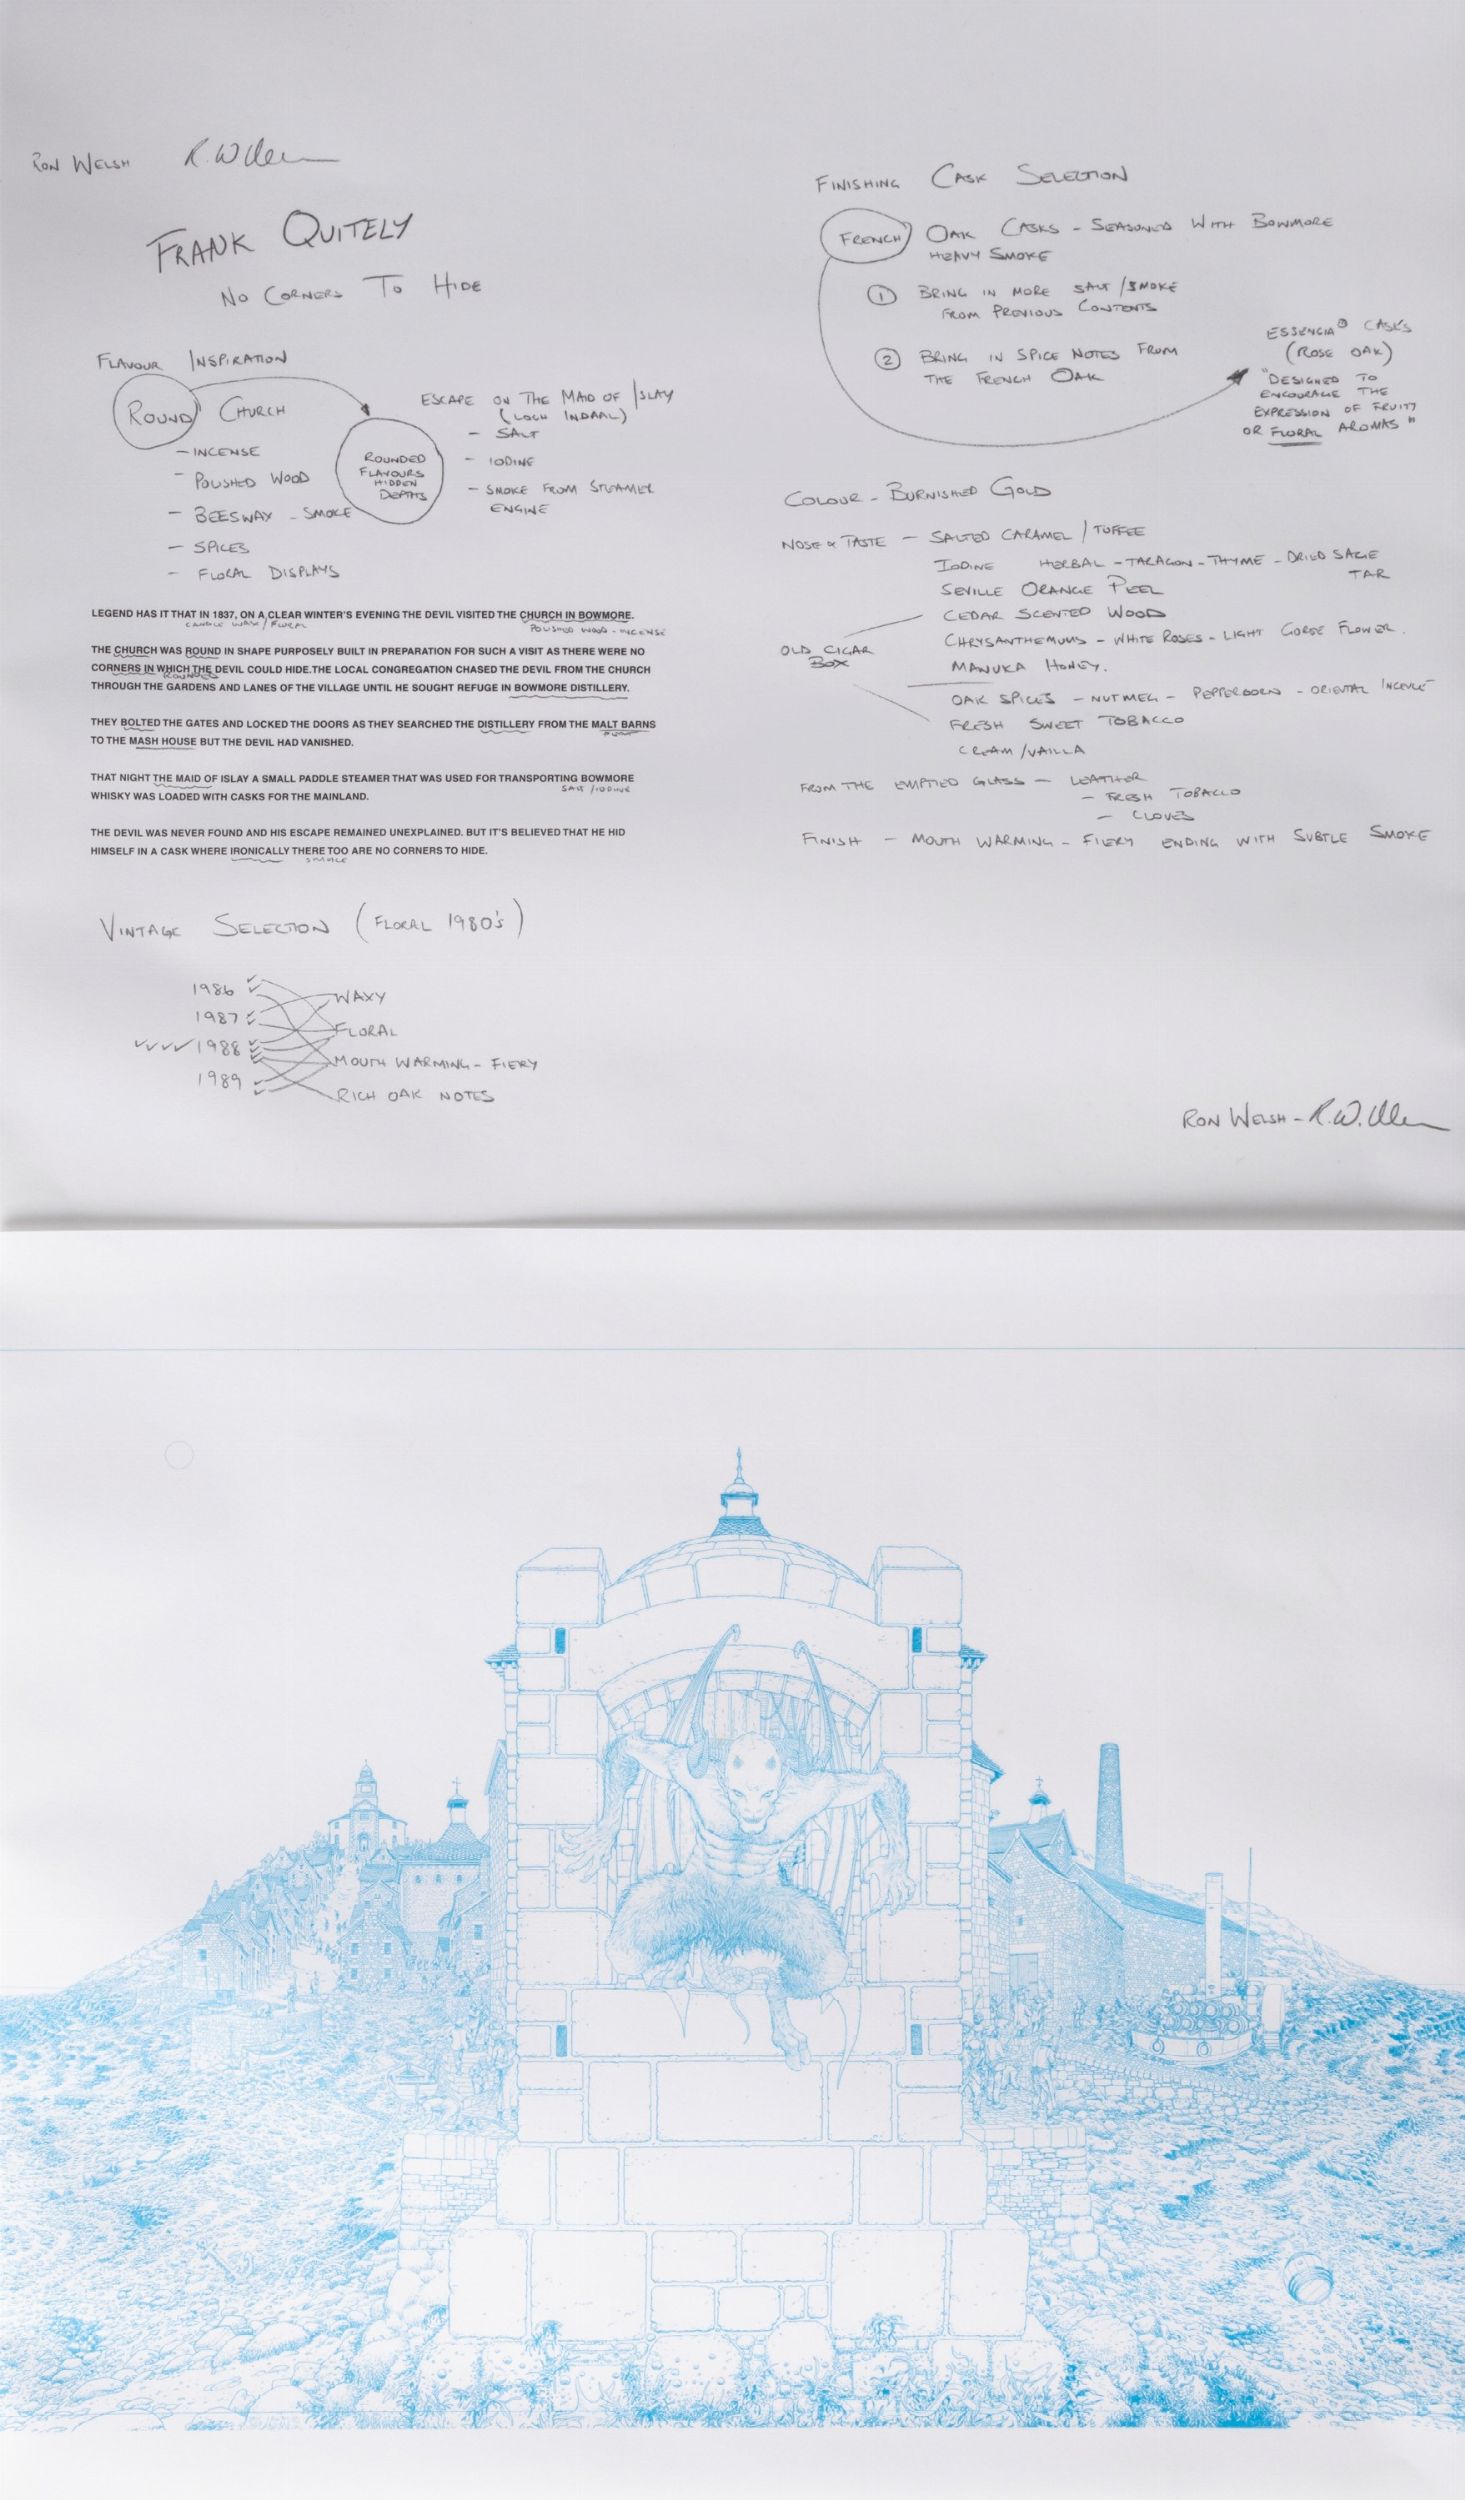 RON WELSH
FRANK QUITELY
NO CORNERS TO HIDE
FLAVOUR INSPIRATION
ROUND CHURCH
- INCENSE
- POLISHED WOOD
- BEESWAX - SMOKE
- SPICES
- FLORAL DISPLAYS
ROUNDED
FLAVOURS
HIDDEN
DEPTHS
ESCAPE ON THE MAID OF ISLAY
(LOCH INDAAL)
- SALT
- IODINE
- SMOKE FROM STEAMER
ENGINE
LEGEND HAS IT THAT IN 1837, ON A CLEAR WINTER'S EVENING THE DEVIL VISITED THE CHURCH IN BOWMORE.
CANDLE WAX / FLORAL
POLISHED WOOD - INCENSE
THE CHURCH WAS ROUND IN SHAPE PURPOSELY BUILT IN PREPARATION FOR SUCH A VISIT AS THERE WERE NO
CORNERS IN WHICH THE DEVIL COULD HIDE.THE LOCAL CONGREGATION CHASED THE DEVIL FROM THE CHURCH
ROUNDED
THROUGH THE GARDENS AND LANES OF THE VILLAGE UNTIL HE SOUGHT REFUGE IN BOWMORE DISTILLERY.
THEY BOLTED THE GATES AND LOCKED THE DOORS AS THEY SEARCHED THE DISTILLERY FROM THE MALT BARNS
TO THE MASH HOUSE BUT THE DEVIL HAD VANISHED.
THAT NIGHT THE MAID OF ISLAY A SMALL PADDLE STEAMER THAT WAS USED FOR TRANSPORTING BOWMORE
SALT / IODINE
WHISKY WAS LOADED WITH CASKS FOR THE MAINLAND.
THE DEVIL WAS NEVER FOUND AND HIS ESCAPE REMAINED UNEXPLAINED. BUT IT'S BELIEVED THAT HE HID
HIMSELF IN A CASK WHERE IRONICALLY THERE TOO ARE NO CORNERS TO HIDE.
SMOKE
VINTAGE SELECTION (FLORAL 1980'S)
1986
1987
1988
1989
WAXY
FLORAL
MOUTH WARMING - FIERY
RICH OAK NOTES
FINISHING CASK SELECTION
FRENCH OAK CASKS - SEASONED WITH BOWMORE
HEAVY SMOKE
1 BRING IN MORE SALT / SMOKE
FROM PREVIOUS CONTENTS
2 BRING IN SPICE NOTES FROM
THE FRENCH OAK
ESSENCIA® CASKS
(ROSE OAK)
"DESIGNED TO
ENCOURAGE THE
EXPRESSION OF FRUITY
OR FLORAL AROMAS"
COLOUR - BURNISHED GOLD
NOSE & TASTE - SALTED CARAMEL / TOFFEE
IODINE HERBAL - TARAGON - THYME - DRIED SAGE
TAR
SEVILLE ORANGE PEEL
CEDAR SCENTED WOOD
CHRYSANTHEMUMS - WHITE ROSES - LIGHT GORSE FLOWER.
OLD CIGAR
BOX
MANUKA HONEY.
OAK SPICES - NUTMEG - PEPPERCORN - ORIENTAL INCENSE
FRESH SWEET TOBACCO
CREAM / VAILLA
FROM THE EMPTIED GLASS - LEATHER
- FRESH TOBACCO
- CLOVES
FINISH - MOUTH WARMING - FIERY ENDING WITH SUBTLE SMOKE
RON WELSH -